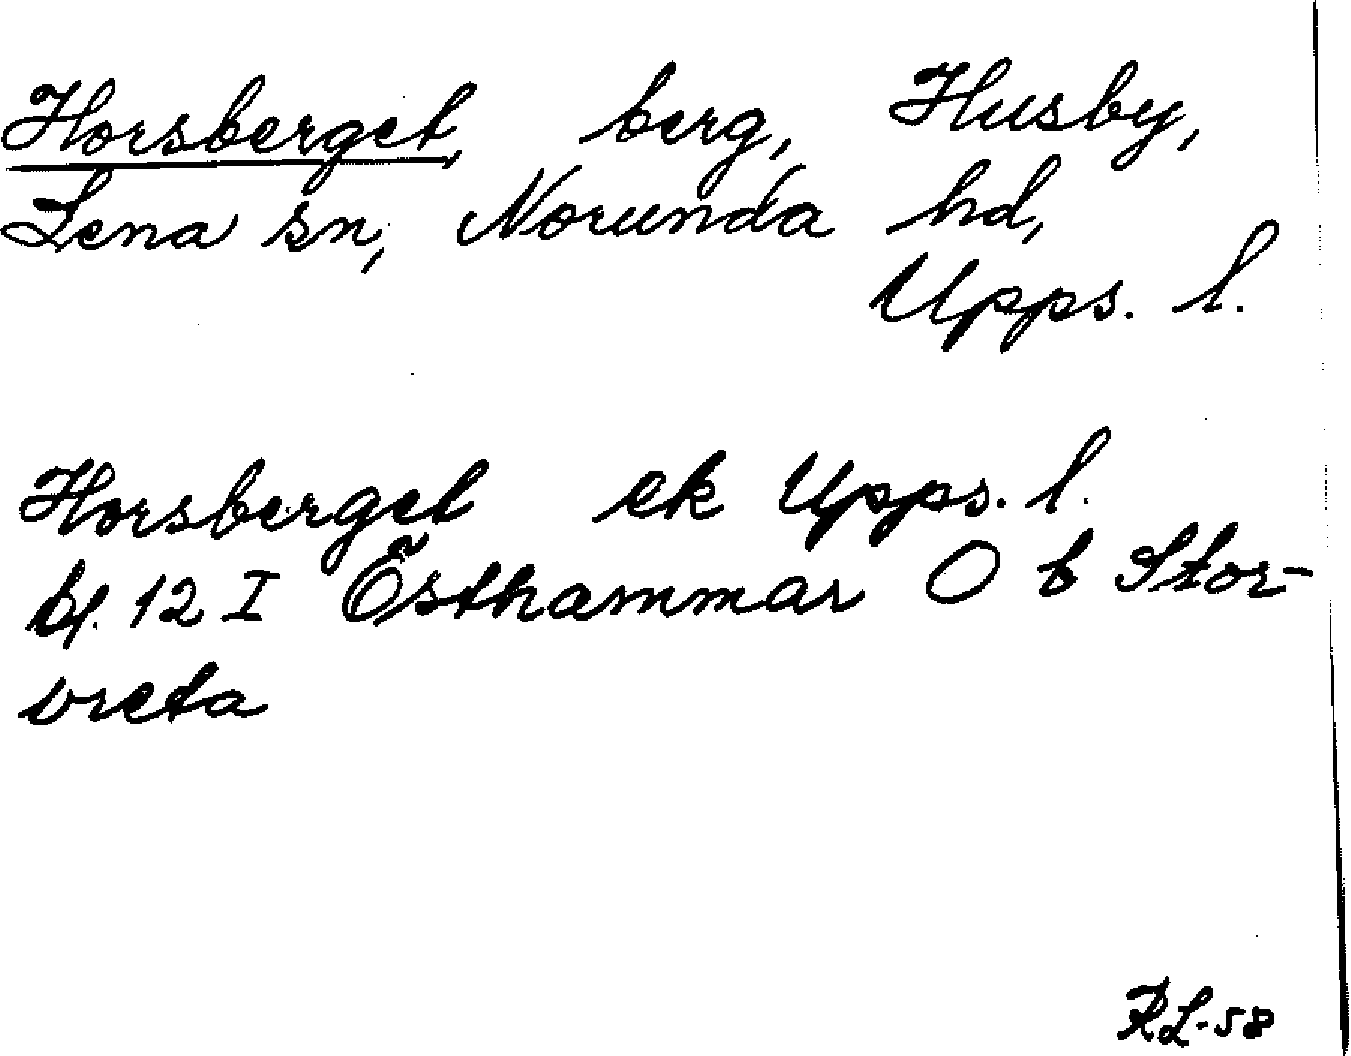 Horsberget, berg, Husby,
Lena sn, Norunda hd,
Upps. l.
Horsberget ek Upps. l.
bl. 12 I Östhammar O b Stor-
vreta
RL-58